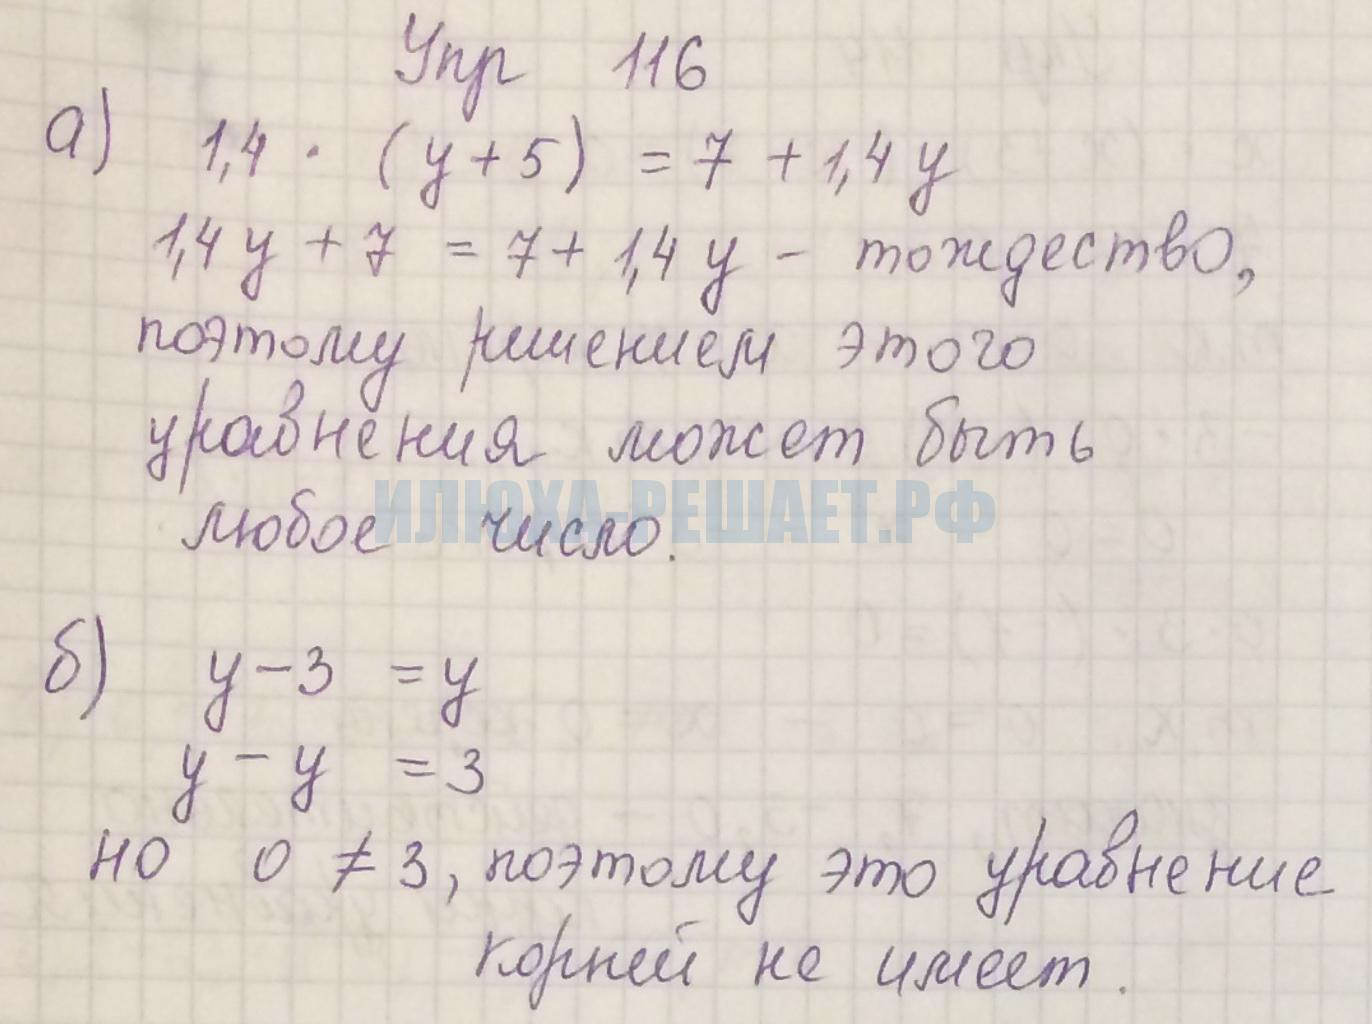 Упр 116
а) 1,4 · (y + 5) = 7 + 1,4y
1,4y + 7 = 7 + 1,4y - тождество,
поэтому решением этого
уравнения может быть
ИЛЮХА-РЕШАЕТ.РФ
любое число.
б) y - 3 = y
y - y = 3
но 0 ≠ 3, поэтому это уравнение
корней не имеет.